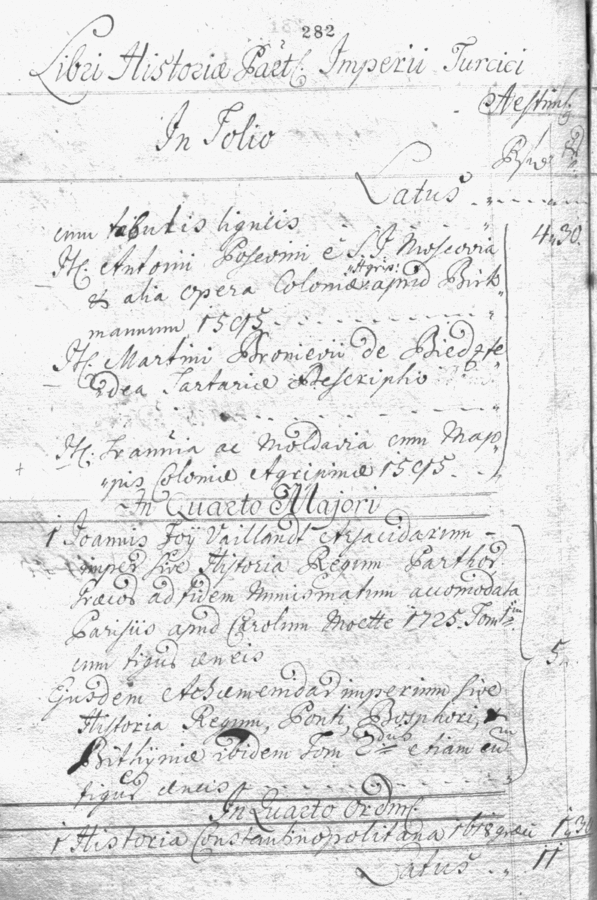 282
Libri Historiæ Part: Imperii Turcici
Aestim:
In Folio
Latus
cum tabulis ligneis 4 30
It. Antonii Posevini è S. J. Moscovia
& alia opera Coloniæ Agrip: apud Birk
mannum 1595
It. Martini Bronievii de Biedzfe
dea Tartariæ Descriptio
It. Transnia ac Moldavia cum Map
pis Coloniæ Agripinæ 1595
In Quarto Majori
1 Joannis Foÿ Vaillandt Arsacidarum
imper sive Historia Regum Parthor
ad fidem Numismatum accomodata
Parisiis apud Carolum Moette 1725. Tom
cum figuris æneis 5
Ejusdem Achæmenidar imperium sive
Historia Regum, Ponti, Bosphori, &
Bithÿniæ ibidem Tom 2dus etiam cum
figuris æneis
In Quarto Ordin:
1 Historia Constantinopolitana 1618 græci 1 30
Latus 11